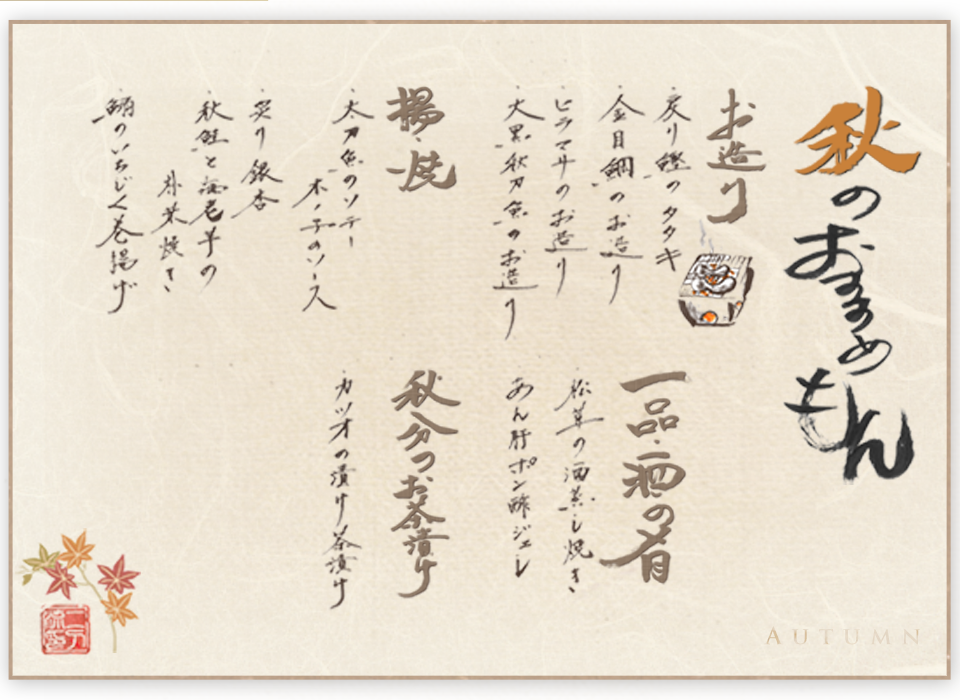 秋のおすすめもん
お造り
・炙り鰹のタタキ
・金目鯛のお造り
・ヒラマサのお造り
・大黒秋刀魚のお造り
一品・酒の肴
・松茸の酒蒸し焼き
・あん肝ポン酢ジュレ
揚・焼
・太刀魚のソテー
木ノ子のソース
・炙り銀杏
・秋鮭と海老芋の
朴葉焼き
のいちじく巻揚げ
秋分のお茶漬け
・カツオの漬け茶漬け
AUTUMN